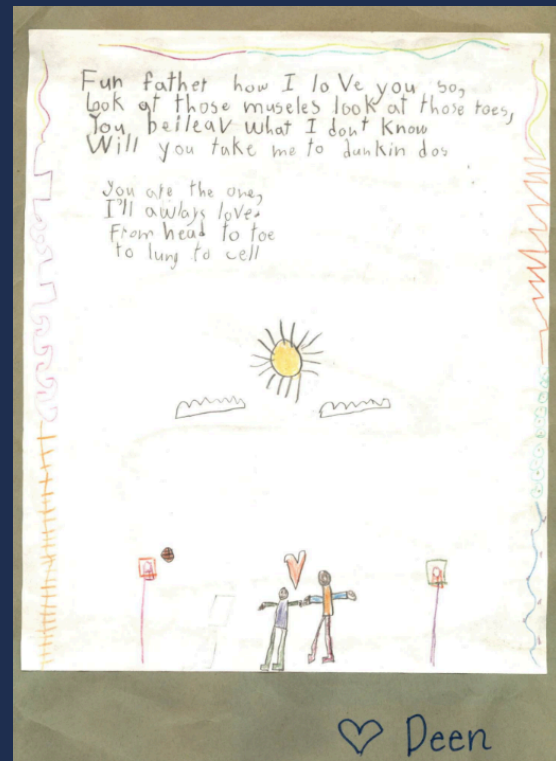 Fun father how I loVe you so,
Look at those museles look at those toes,
You beileav what I dont know
Will you take me to dunkin dos
You are the one,
I'll awlays love.
From head to toe
to lung to cell
♡ Deen